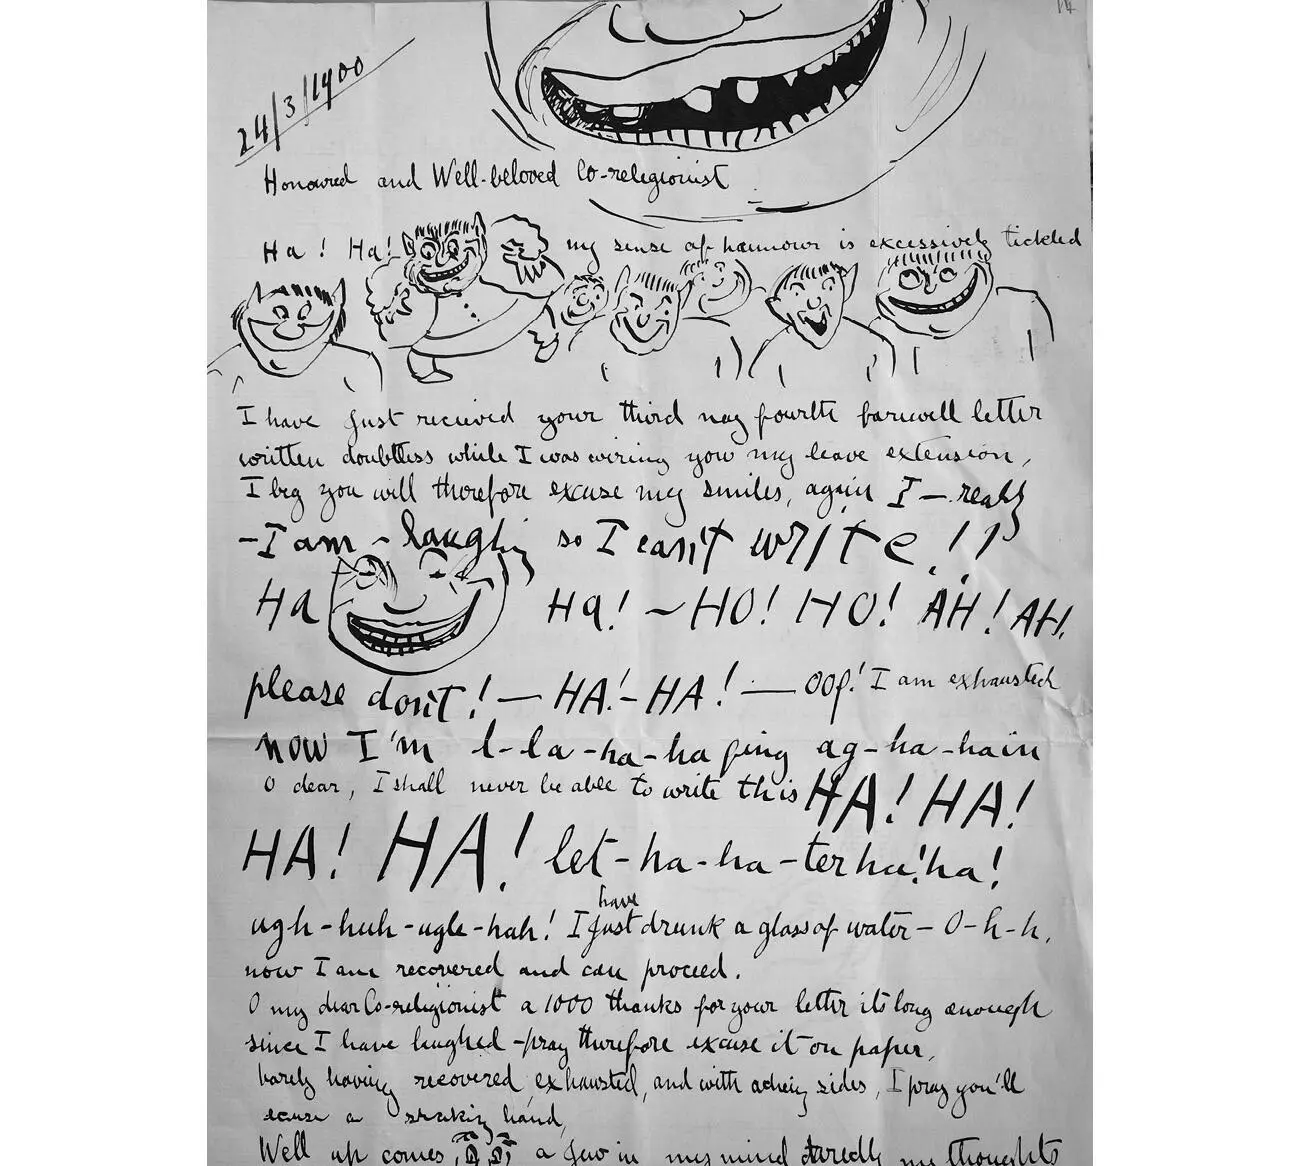 14
24/3/1900
Honoured and Well-beloved Co-religionist
Ha! Ha! my sense of humour is excessively tickled
I have just received your third nay fourth farewell letter
written doubtless while I was wiring you my leave extension,
I beg you will therefore excuse my smiles, again I — really
- I am - laughi so I can't write!!
Ha Ha! ~ HO! HO! AH! AH!
please don't! — HA! - HA! — oof! I am exhausted
now I'm l-la-ha-ha ag-ha-hain
O dear, I shall never be able to write this HA! HA!
HA! HA! let-ha-ha-ter ha! ha!
ugh-huh-ugh-hah! I have just drunk a glass of water — O-h-h,
now I am recovered and can proceed.
O my dear Co-religionist a 1000 thanks for your letter its long enough
since I have laughed - pray therefore excuse it on paper,
barely having recovered, exhausted, and with aching sides, I pray you'll
a shaking hand,
Well up comes a in my mind my thoughts